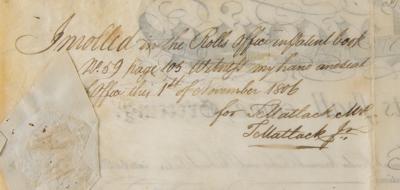 Inrolled in the Rolls Office in Patent book
No. 59 page 105 Witness my hand and seal
Office this 1st of November 1806
for TMatlack M.R.
TMatlack Jr